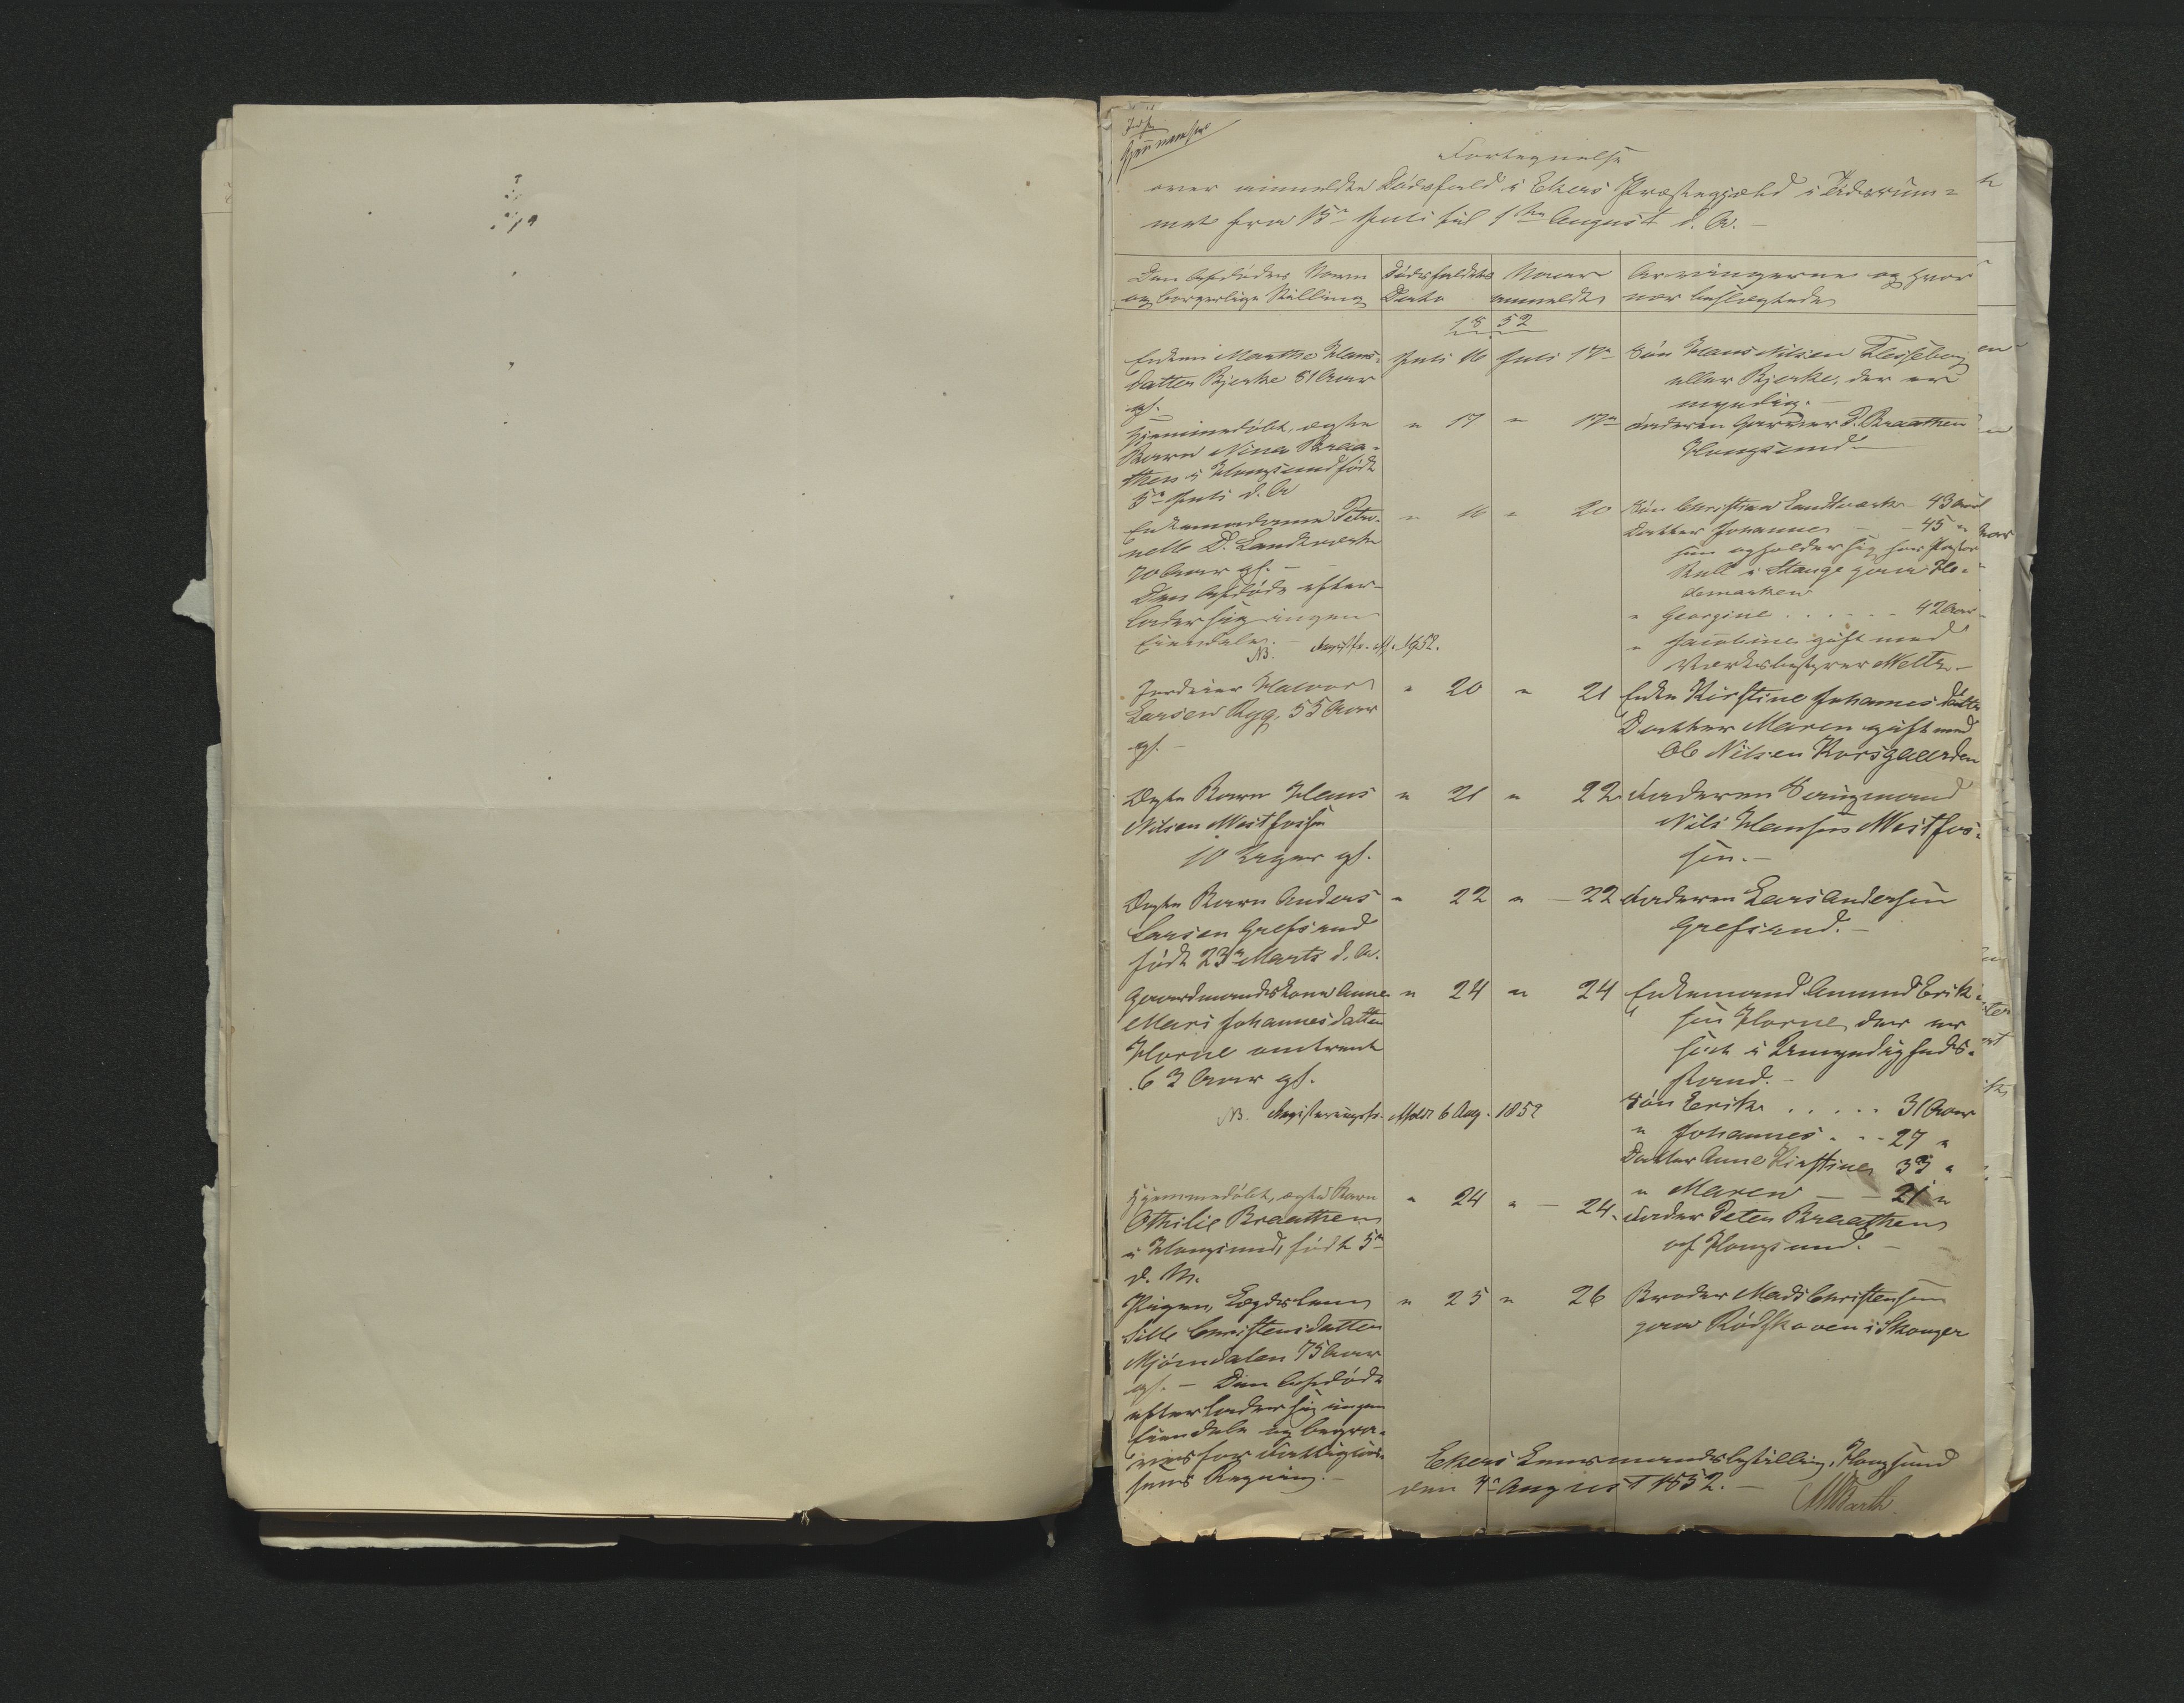 Fortegnelse
over anmeldte Dödsfald i Ekers Præstegjæld i Tidsrum-
met fra 15de Juli til 1ste August d. A. -
Den Afdödes Navn
og borgerlige Stilling
Dödsfaldets
Dato
Naar
anmeldt
Arvingerne og hvor
nær beslægtede
1852
Enken Marthe Hans-
datter Bjerke 81 Aar
gl.
Juli 16
Juli 17de
Sön Hans Nilsen Flesseberg
eller Bjerke, der er
myndig. -
Hjemmedöbt, ægte
Barn Nina Braa-
then i Hougsund födt
5te Juli d. A.
" 17
" 17de
Faderen Garver P. Braathen
Hougsund -
Enkemadame Petro-
nelle D. Landmark
70 Aar gl. -
Den Afdöde efter-
lader sig ingen
Eiendele. -
NB. 1852.
" 16
" 20
Sön Christian Landmark 43 Aar
Datter Johanne - - 45 "
hun opholder sig hos Pastor
i Stange paa He-
demarken
" Georgine . . . . . 42 Aar
" Jacobine gift med
Værksbestyrer Meltz. -
Inderær Halvor
Larsen Ryg, 55 Aar
gl. -
" 20
" 21
Enke Kirstine Johannesdatter
Datter Maren gift med
Ole Nilsen Korsgaarden
Ægte Barn Hans
Nilsen Mestfossen
10 Uger gl.
" 21
" 22
Faderen Saugmand
Nils Hansen Mestfos-
sen. -
Ægte Barn Anders
Larsen Grefsrud
födt 23de Marts d. A.
" 22
" - 22
Faderen Lars Andersen
Grefsrud. -
Gaardmandskone Anne
Mari Johannesdatter
Horne omtrent
62 Aar gl.
NB. Registeringsfr. afholdt 6 Aug. 1852
" 24
" 24
Enkemand Amund Erik-
sen Horne, der er
sat i Umyndigheds-
stand. -
Sön Erik . . . . . 31 Aar
" Johannes . . . 27 "
Datter Anne Kirstine 33 "
" Maren - - 21 "
Hjemmedöbt, ægte Barn
Othilie Braathen
i Hougsund, födt 5te
d. M.
" 24
" - 24.
Fader Peter Braathen
af Hougsund. -
Pigen, Lægdslem
Sille Christensdatter
Mjöndalen 75 Aar
gl. - Den Afdöde
efterlader sig ingen
Eiendele og begra-
ves for Fattigkas-
sens Regning. -
" 25
" 26
Broder Mads Christensen
paa Rödskoven i Skouger
Ekers Lensmandsbestilling, Hougsund
den 4de August 1852. -
MBarth